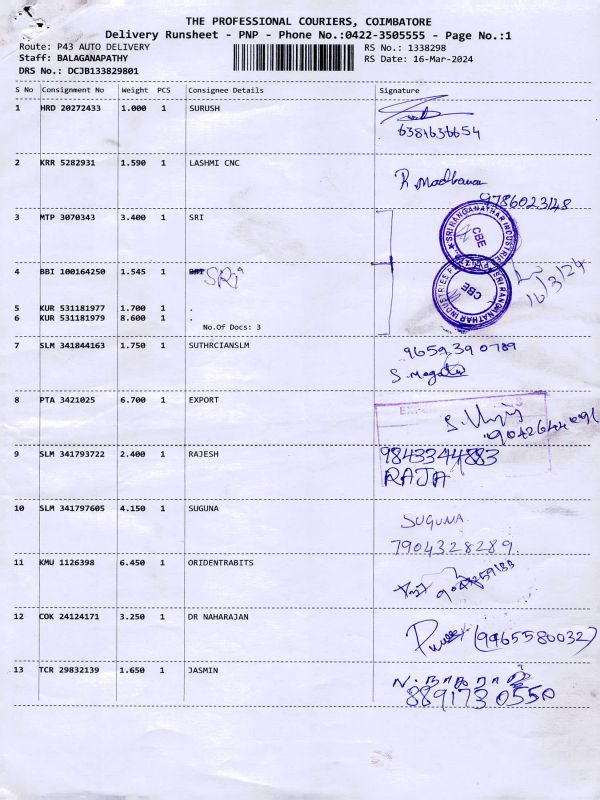 THE PROFESSIONAL COURIERS, COIMBATORE
Delivery Runsheet - PNP - Phone No.:0422-3505555 - Page No.:1
Route: P43 AUTO DELIVERY RS No.: 1338298
Staff: BALAGANAPATHY RS Date: 16-Mar-2024
DRS No.: DCJB133829801
S No Consignment No Weight PCS Consignee Details Signature
1 HRD 20272433 1.000 1 SURUSH
6381636654
2 KRR 5282931 1.590 1 LASHMI CNC
R. Madhavan
9786023148
3 MTP 3070343 3.400 1 SRI
SRI RANGANATHAR INDUSTRIES P
CBE
4 BBI 100164250 1.545 1 SRI
SRI RANGANATHAR INDUSTRIES P
CBE
16/3/24
5 KUR 531181977 1.700 1 .
6 KUR 531181979 8.600 1 .
No.Of Docs: 3
7 SLM 341844163 1.750 1 SUTHRCIANSLM
9659390789
8 PTA 3421025 6.700 1 EXPORT
9 SLM 341793722 2.400 1 RAJESH
9843344883
RAJA
10 SLM 341797605 4.150 1 SUGUNA
SUGUNA
7904328289
11 KMU 1126398 6.450 1 ORIDENTRABITS
12 COK 24124171 3.250 1 DR NAHARAJAN
(9965580032)
13 TCR 29832139 1.650 1 JASMIN
8891730550